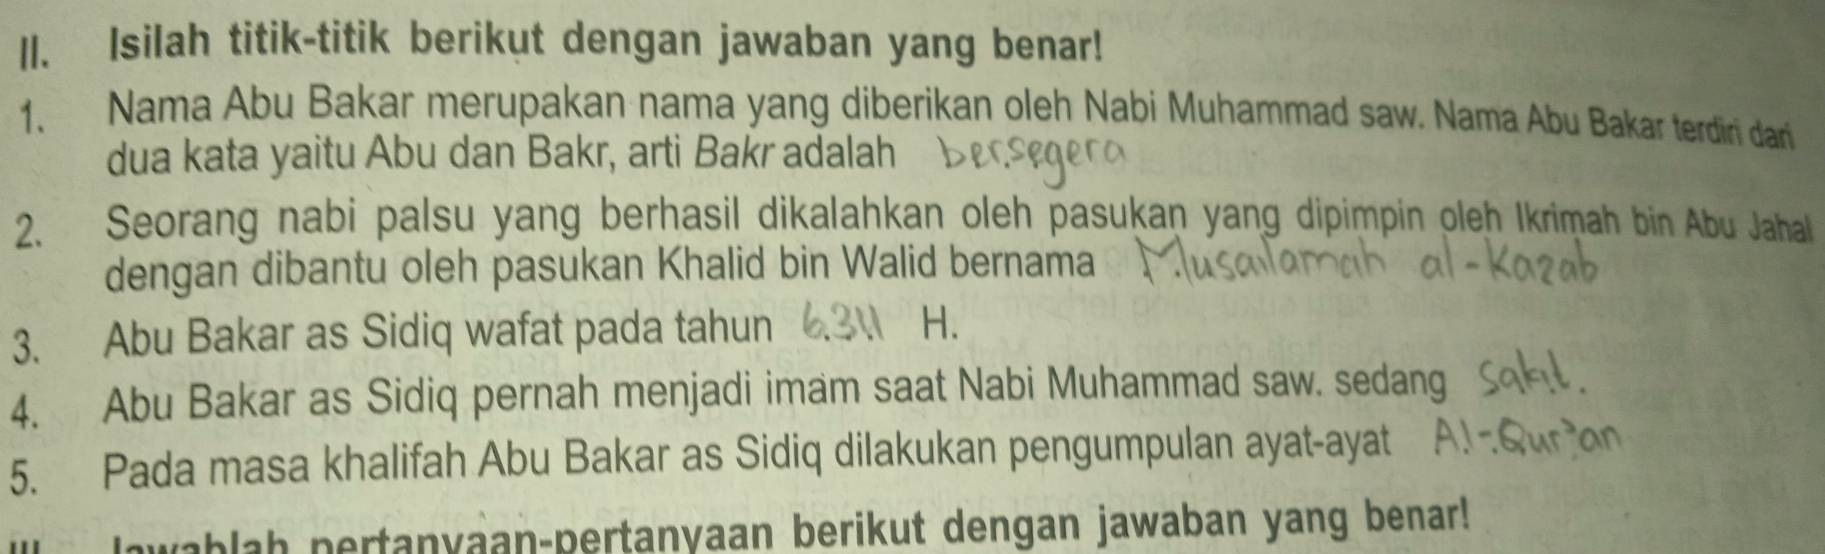 II. Isilah titik-titik berikut dengan jawaban yang benar!
1. Nama Abu Bakar merupakan nama yang diberikan oleh Nabi Muhammad saw. Nama Abu Bakar terdiri dari
dua kata yaitu Abu dan Bakr, arti Bakr adalah bersegera
2. Seorang nabi palsu yang berhasil dikalahkan oleh pasukan yang dipimpin oleh Ikrimah bin Abu Jahal
dengan dibantu oleh pasukan Khalid bin Walid bernama Musailamah al-Kazab
3. Abu Bakar as Sidiq wafat pada tahun H.
4. Abu Bakar as Sidiq pernah menjadi imam saat Nabi Muhammad saw. sedang sakit.
5. Pada masa khalifah Abu Bakar as Sidiq dilakukan pengumpulan ayat-ayat Al-Qur'an
III. Jawablah pertanyaan-pertanyaan berikut dengan jawaban yang benar!